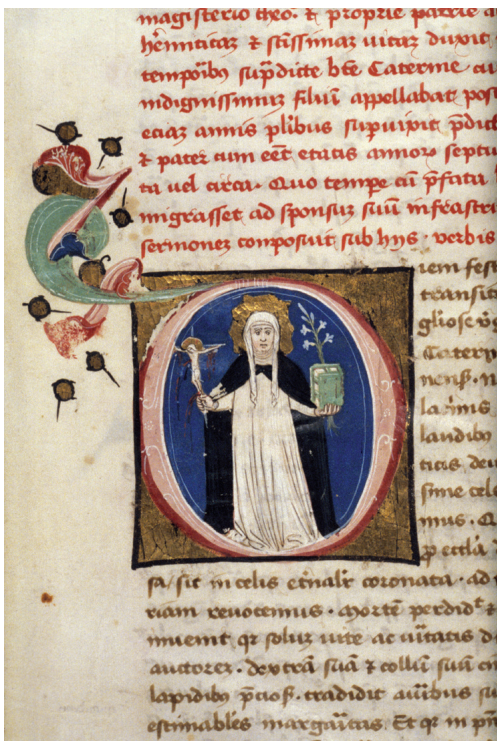 magisterio theo. ⁊ proprie patrie a
hemiticaz ⁊ scissimaz uitaz duxit
tempoibꝰ sup̄dicte bt̄e Caterine cu
indignissimuz filiuz appellabat post
etiaz annis plibus supuixit p̄dict
⁊ pater cum eēt etatis annor septu
ta uel circa. Quo tempe cū p̄fata
migrasset ad sponsuz suū infrascri
sermonez composuit sub hys. uerbis
iem fest
transit
gliose v̄
Catery
nens. n
la
laudibꝰ
sime cel
mus. Q
p eccl̄a
sa. sit in celis et̄nalr coronata. ad
riam reuocemus. Mortē perdidᵗ ⁊
inuenit qr solus uite ac uitatis d
auctorez. dextrā suā ⁊ collū suū cin
lapidibꝰ p̄ciosˢ. tradidit auribus su
estimabl̄es margaritas. Et qr in pm